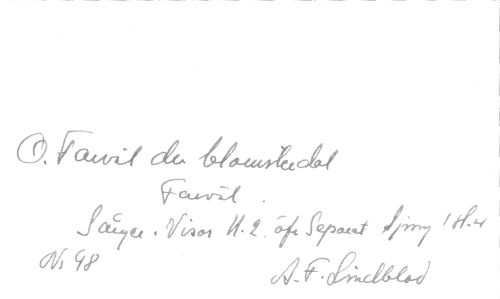 O. Farväl du blomsterdal
Farväl.
Sånger. Visor H. 2. öfv Separat
No 98
A. F. Lindblad